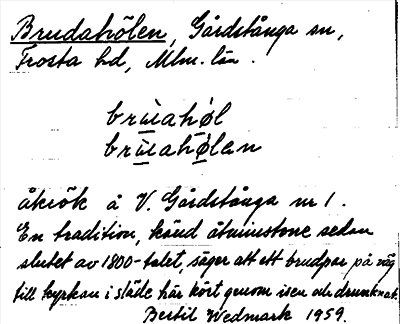 Brudahölen, Gårdstånga sn,
Frosta hd, Mlm. län.
brùahø̀l
brùahø̀lan
åkrök å V. Gårdstånga nr 1.
En tradition, känd åtminstone sedan
slutet av 1800-talet, säger att ett brudpar på väg
till kyrkan i släde här kört genom isen och drunknat.
Bertil Wedmark 1959.